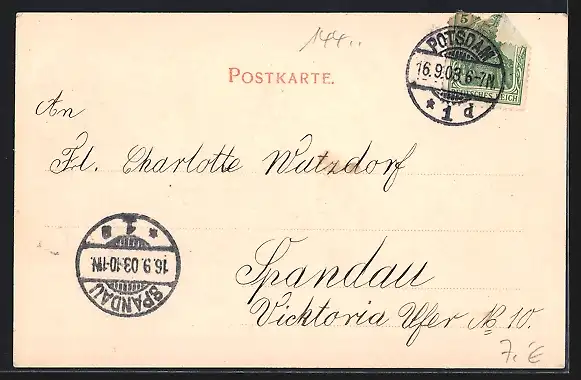 144..
5
POTSDAM
16.9.03 6-7N
* 1 d
DEUTSCHES REICH
POSTKARTE.
An
Frl. Charlotte Wutzdorf
* 1 a
16.9.03.10-11N.
SPANDAU
Spandau
Vicktoria Ufer No 10.
7.€